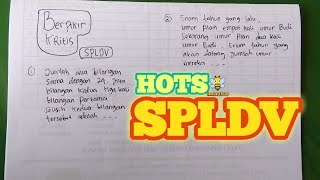 Berpikir
Kritis
SPLDV
① Jumlah dua bilangan
sama dengan 24. Jika
bilangan kedua tiga kali
bilangan pertama
selisih kedua bilangan
tersebut adalah ....
② Enam tahun yang lalu
umur Pian empat kali umur Budi
Sekarang umur Pian dua kali
umur Budi. Enam tahun yang
akan datang jumlah umur
mereka ....
HOTS
SPLDV